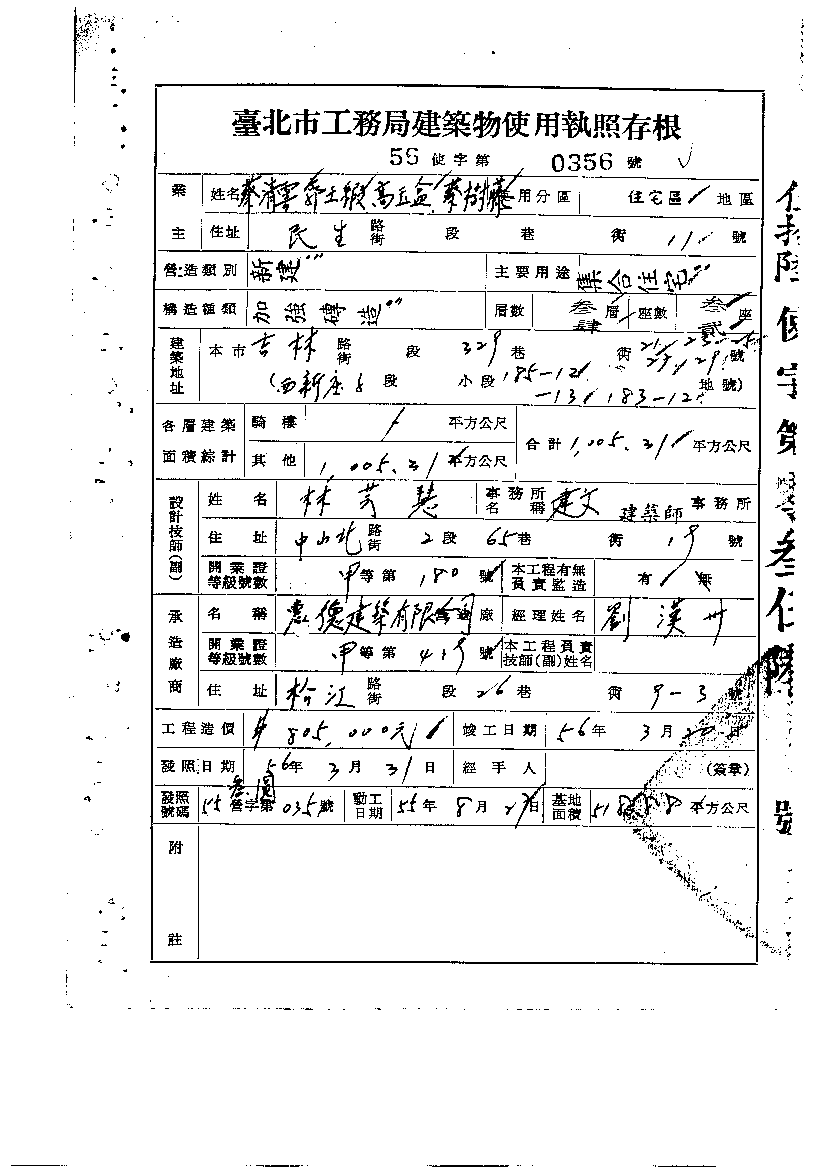 臺北市工務局建築物使用執照存根
56 使字第 0356 號
業主 姓名 使用分區 住宅區 地區
住址 民生 路街 段 巷 街 11 號
營造類別 新建 主要用途 集合住宅
構造種類 加強磚造 層數 叁肆 層 座數 叁貳 座
建築地址 本市 吉林 路街 段 329 巷 街 號
(西新庄子段 小段 185-12 地號)
-13 183-12
各層建築面積綜計 騎樓 平方公尺 合計 1,005.31 平方公尺
其他 1,005.31 平方公尺
設計技師(副) 姓名 林芳慧 事務所名稱 建文 建築師 事務所
住址 中山北 路街 2 段 65 巷 街 19 號
開業證等級號數 甲 等第 180 號 本工程有無負責監造 有 無
承造廠商 名稱 德建築有限公司 廠 經理姓名 劉漢卅
開業證等級號數 甲 等第 419 號 本工程負責技師(副)姓名
住址 松江 路街 段 26 巷 街 9-3 號
工程造價 805,000元 竣工日期 56 年 3 月 20 日
發照日期 56 年 3 月 31 日 經手人 (簽章)
發照號碼 55 營字第 035 號 動工日期 55 年 8 月 27 日 基地面積 平方公尺
叁 圓
附註
伍拾陸使字第零叁伍陸號